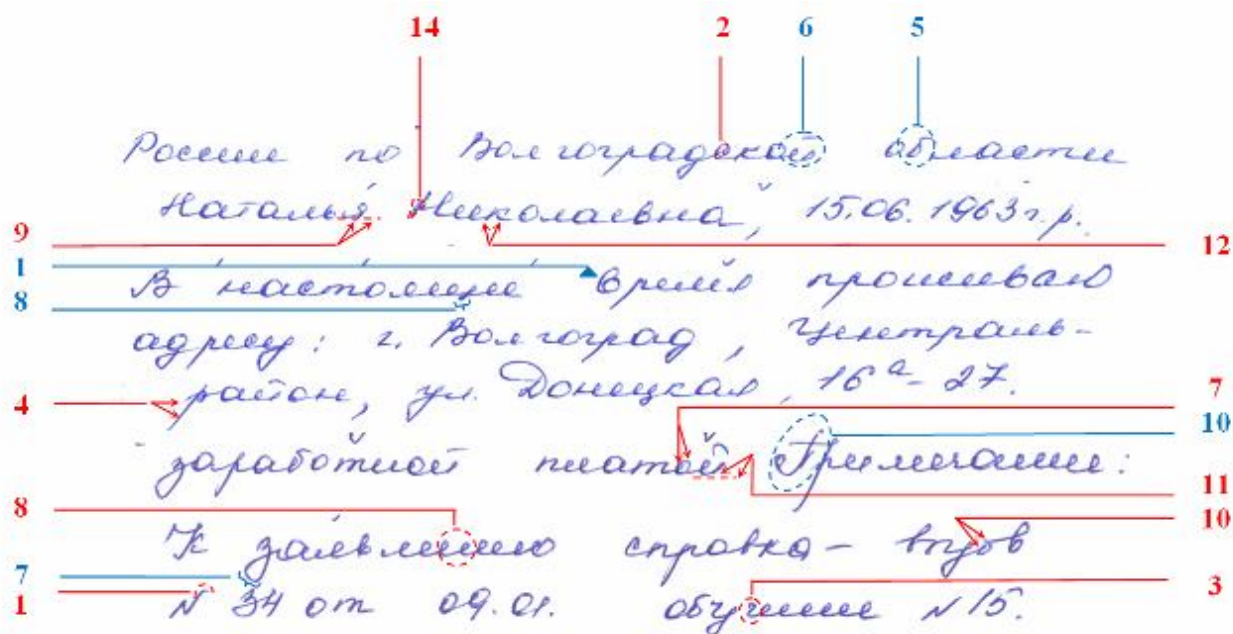 14 2 6 5
России по Волгоградской области
Наталья Николаевна, 15.06.1963 г.р.
9 12
1
В настоящее время проживаю
8
адресу: г. Волгоград, Централь-
4 район, ул. Донецкая, 16а-27. 7
10
заработной платой Примечание:
11
8 10
К заявлению справка-вызов
7 3
1 N 34 от 09.01. обучение N 15.